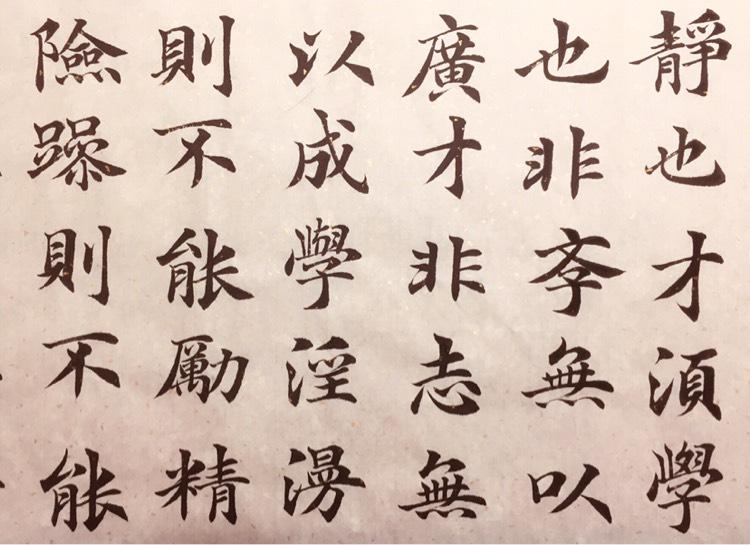 靜也才須學
也非斈無以
廣才非志無
以成學淫漫
則不能勵精
險躁則不能